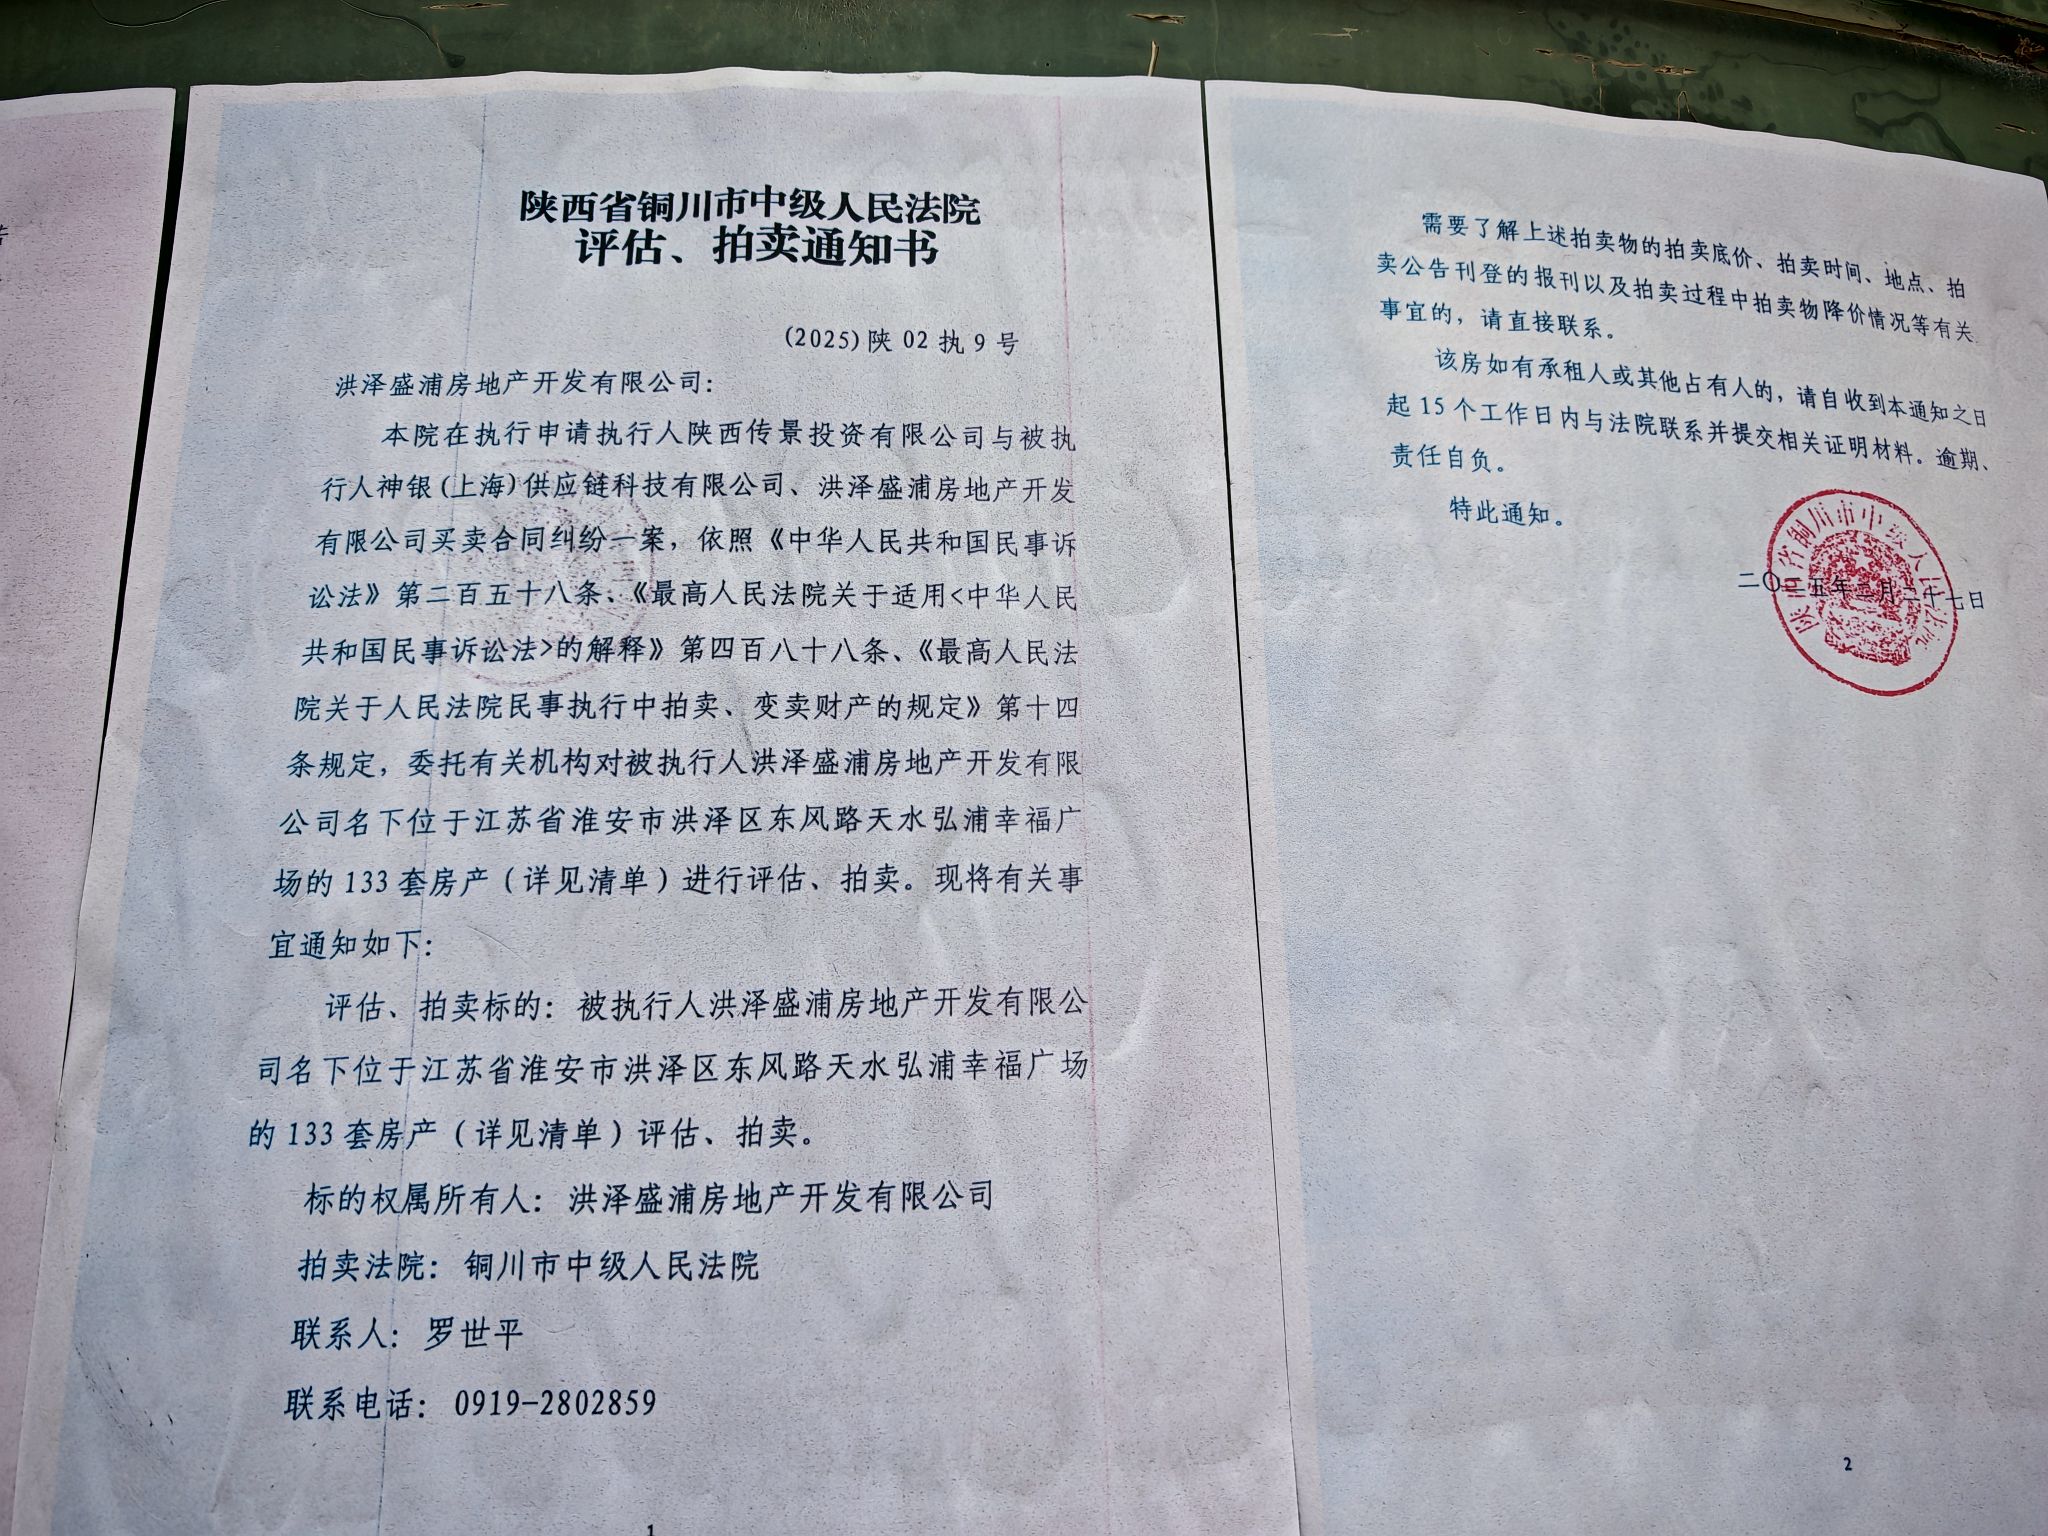 告
陕西省铜川市中级人民法院
评估、拍卖通知书
(2025)陕 02 执 9 号
洪泽盛浦房地产开发有限公司:
本院在执行申请执行人陕西传景投资有限公司与被执
行人神银(上海)供应链科技有限公司、洪泽盛浦房地产开发
有限公司买卖合同纠纷一案，依照《中华人民共和国民事诉
讼法》第二百五十八条、《最高人民法院关于适用<中华人民
共和国民事诉讼法>的解释》第四百八十八条、《最高人民法
院关于人民法院民事执行中拍卖、变卖财产的规定》第十四
条规定，委托有关机构对被执行人洪泽盛浦房地产开发有限
公司名下位于江苏省淮安市洪泽区东风路天水弘浦幸福广
场的 133 套房产（详见清单）进行评估、拍卖。现将有关事
宜通知如下:
评估、拍卖标的: 被执行人洪泽盛浦房地产开发有限公
司名下位于江苏省淮安市洪泽区东风路天水弘浦幸福广场
的 133 套房产（详见清单）评估、拍卖。
标的权属所有人: 洪泽盛浦房地产开发有限公司
拍卖法院: 铜川市中级人民法院
联系人: 罗世平
联系电话: 0919-2802859
1
需要了解上述拍卖物的拍卖底价、拍卖时间、地点、拍
卖公告刊登的报刊以及拍卖过程中拍卖物降价情况等有关
事宜的，请直接联系。
该房如有承租人或其他占有人的，请自收到本通知之日
起 15 个工作日内与法院联系并提交相关证明材料。逾期、
责任自负。
特此通知。
陕西省铜川市中级人民法院
二〇二五年二月二十七日
2